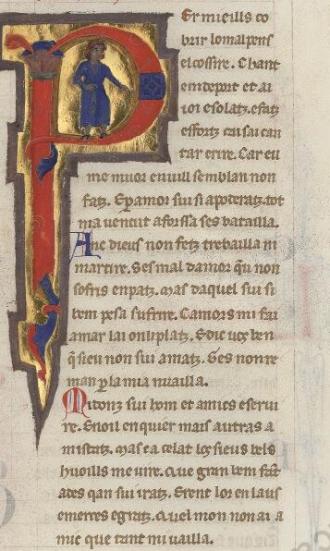 Er mieills co
brir lo mal pens
el cossire. Chant
em deport et ai
ioi e solatz. e fatz
effortz car sai can
tar e rire. Car eu
me muor e nuill semblan non
fatz. Eꝑ amor sui si apoderatz. tot
ma vencut a forssa ses batailla.
Anc dieus non fetz trebailla ni
martire. Ses mal damor qu non
sofris en patz. mas daquel sui si
bem pesa sufrire. Camors mi fai
amar lai on li platz. E dic vos ben
q̄ sieu non sui amatz. Ges non re
man ꝑ la mia nuailla.
Midonz sui hom et amics e serui
re. E noil enquier mais autras a
mistatz. mas e a celat los sieus bels
huoills me vire. Que gran ben fāt
ades qan sui iratz. E rent lor en laus
e merces e gratz. Quel mon non ai a
mic que tant mi vailla.